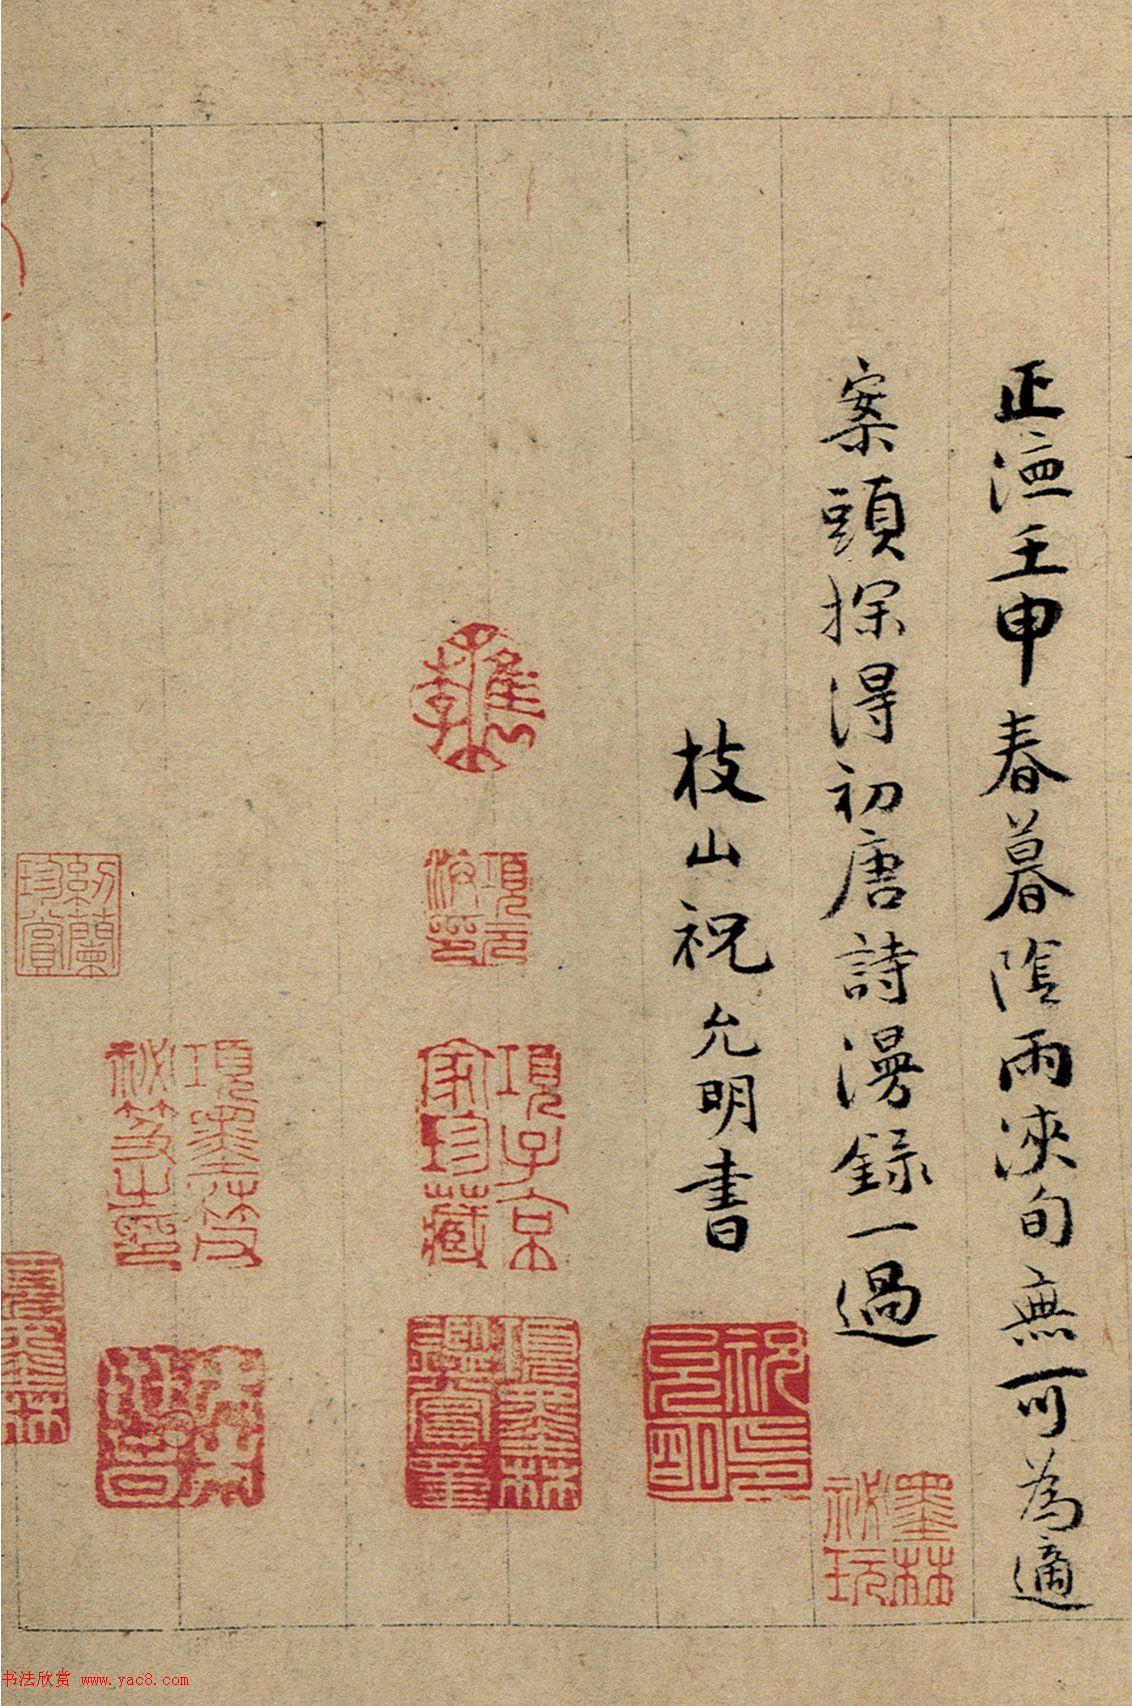 正德壬申春暮陰雨浹旬無可為適
案頭探得初唐詩漫錄一過
枝山祝允明書
墨林秘玩
祝印允明
檇李
項元汴印
項子京家珍藏
項墨林鑑賞章
項墨林父秘笈之印
書法欣赏 www.yac8.com